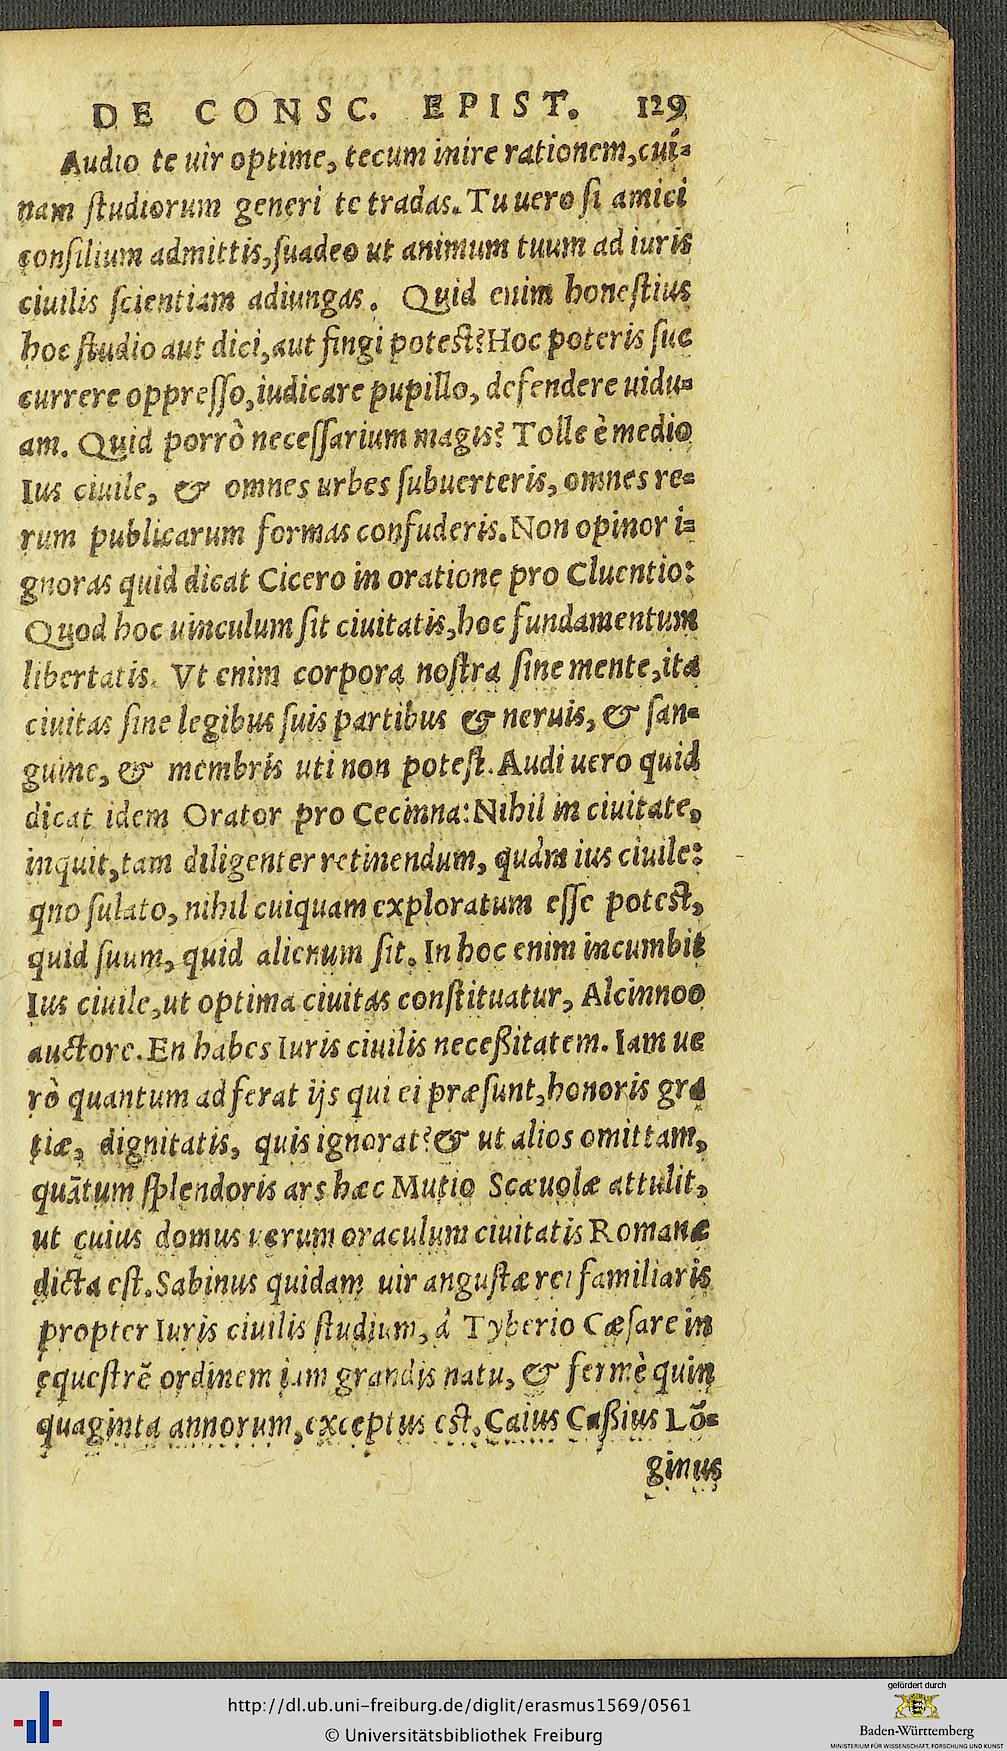 DE CONSC. EPIST. 129
Audio te uir optime, tecum inire rationem, cuí-
nam ſtudiorum generi te tradas. Tu uero ſi amici
conſilium admittis, ſuadeo ut animum tuum ad iuris
ciuilis ſcientiam adiungas. Quid enim honeſtius
hoc ſtudio aut dici, aut fingi poteſt? Hoc poteris ſuc
currere oppreſſo, iudicare pupillo, defendere uidu-
am. Quid porrò neceſſarium magis? Tolle è medio
Ius ciuile, & omnes urbes ſubuerteris, omnes re-
rum publicarum formas confuderis. Non opinor i-
gnoras quid dicat Cicero in oratione pro Cluentio:
Quod hoc uinculum ſit ciuitatis, hoc fundamentum
libertatis. Vt enim corpora noſtra ſine mente, ita
ciuitas ſine legibus ſuis partibus & neruis, & ſan-
guine, & membris uti non poteſt. Audi uero quid
dicat idem Orator pro Cecinna: Nihil in ciuitate,
inquit, tam diligenter retinendum, quàm ius ciuile:
qno ſulato, nihil cuiquam exploratum eſſe poteſt,
quid ſuum, quid alienum ſit. In hoc enim incumbit
Ius ciuile, ut optima ciuitas conſtituatur, Alcinnoo
auctore. En habes Iuris ciuilis neceßitatem. Iam ue
rò quantum adferat ijs qui ei præſunt, honoris gra
tiæ, dignitatis, quis ignorat? & ut alios omittam,
quātum ſplendoris ars hæc Mutio Scæuolæ attulit,
ut cuius domus uerum oraculum ciuitatis Romanæ
dicta eſt. Sabinus quidam uir anguſtæ rei familiaris
propter Iuris ciuilis ſtudium, à Tyberio Cæſare in
equeſtrē ordinem iam grandis natu, & fermè quin
quaginta annorum, exceptus eſt. Caius Caßius Lō-
ginus
http://dl.ub.uni-freiburg.de/diglit/erasmus1569/0561
© Universitätsbibliothek Freiburg
gefördert durch
Baden-Württemberg
MINISTERIUM FÜR WISSENSCHAFT, FORSCHUNG UND KUNST